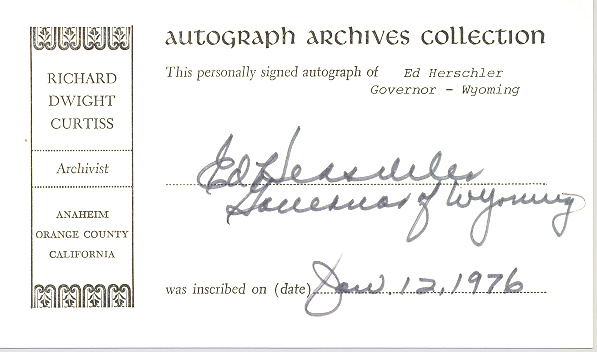 AUTOGRAPH ARCHIVES COLLECTION
RICHARD
DWIGHT
CURTISS
Archivist
ANAHEIM
ORANGE COUNTY
CALIFORNIA
This personally signed autograph of Ed Herschler
Governor - Wyoming
Ed Herschler
Governor of Wyoming
was inscribed on (date) Jan. 12, 1976